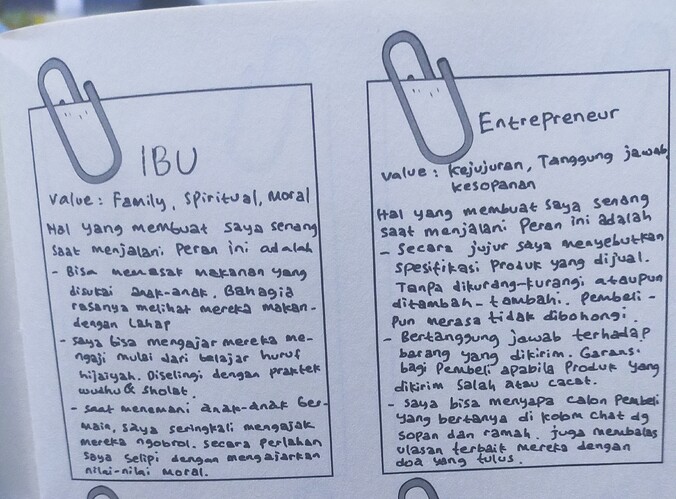 IBU
Value: Family, Spiritual, Moral
Hal yang membuat saya senang
saat menjalani Peran ini adalah
- Bisa memasak makanan yang
disukai anak-anak. Bahagia
rasanya melihat mereka makan-
dengan lahap
- Saya bisa mengajar mereka me-
ngaji mulai dari belajar huruf
hijaiyah. Diselingi dengan praktek
wudhu & sholat.
- saat menemani anak-anak ber-
main, saya seringkali mengajak
mereka ngobrol. secara perlahan
saya selipi dengan mengajarkan
nilai-nilai moral.
Entrepreneur
Value: Kejujuran, Tanggung jawab,
kesopanan
Hal yang membuat saya senang
saat menjalani Peran ini adalah
- Secara jujur saya menyebutkan
spesifikasi Produk yang dijual.
Tanpa dikurang-kurangi ataupun
ditambah-tambahi. Pembeli-
pun merasa tidak dibohongi.
- Bertanggung jawab terhadap
barang yang dikirim. Garansi
bagi Pembeli apabila Produk yang
dikirim salah atau cacat.
- saya bisa menyapa calon Pembeli
yang bertanya di kolom chat dg
sopan dan ramah. juga membalas
ulasan terbaik mereka dengan
doa yang tulus.